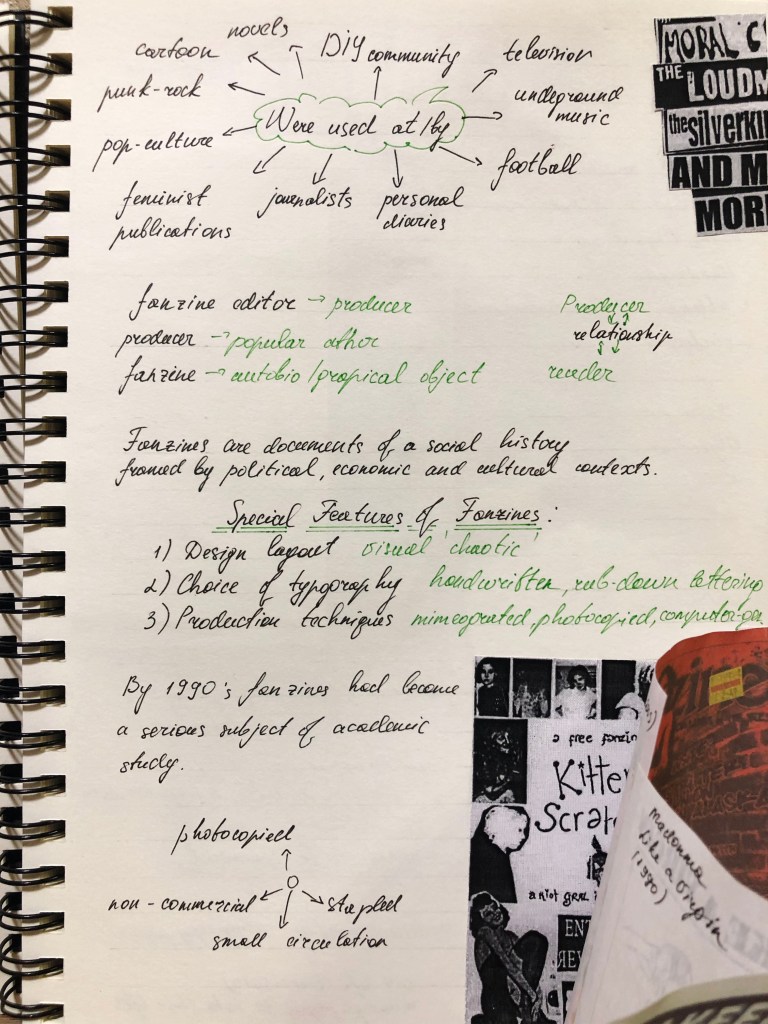 novels
cartoon
DiY community
television
punk-rock
undeground
music
Were used at/by
pop-culture
football
feminist
publications
journalists
personal
diaries
MORAL C
THE LOUDM
the silverkin
AND M
MORE
fanzine editor → producer
producer → popular athor
fanzine → autobio/grapical object
Producer
relationship
reader
Fanzines are documents of a social history
framed by political, economic and cultural contexts.
Special Features of Fanzines:
1) Design layout visual 'chaotic'
2) Choice of typography handwritten, rub-down lettering
3) Production techniques mimeograted, photocopied, computer-gen.
By 1990's fanzines had become
a serious subject of academic
study.
a free fanzin
Kitten
Scratc
a riot grrl
photocopied
non-commercial
stapled
small circulation
Madonna
Like a virgin
(1990)